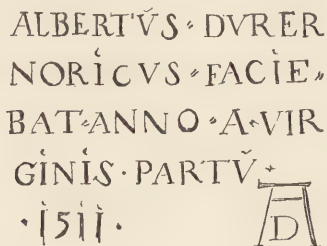 ALBERTV̆S · DVRER
NORICVS · FACIE
BAT · ANNO · A · VIR
GINIS · PARTV̆ ·
· 1511 ·
AD